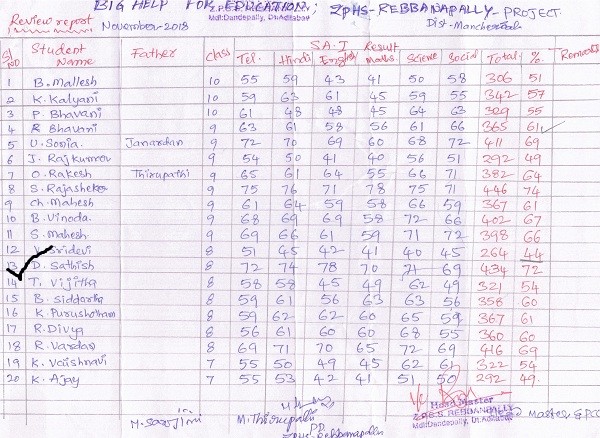 BIG HELP FOR EDUCATION; ZPHS-REBBANAPALLY-PROJECT
Review report November-2018 Mdl:Dandepally, Dt:Adilabad Dist-Mancherial
Sl NO Student Name Father Class SA-I Result Total % Remarks
Tel. Hindi English Maths Science Social
1 B. Mallesh 10 55 59 43 41 50 58 306 51
2 K. Kalyani 10 59 63 61 45 59 55 342 57
3 P. Bhavani 10 61 48 48 45 64 63 329 55
4 R Bhavani 9 63 61 58 56 61 66 365 61
5 U. Sonia. Janardan 9 72 70 69 60 68 72 411 69
6 J. Rajkumar 9 54 50 41 40 56 51 292 49
7 O. Rakesh Thirupathi 9 65 61 64 55 66 71 382 64
8 S. Rajasheker 9 75 76 71 78 75 71 446 74
9 Ch. Mahesh 9 61 64 59 58 66 59 367 61
10 B. Vinoda. 9 68 69 69 58 72 66 402 67
11 S. Mahesh 9 69 66 61 59 71 72 398 66
12 Sridevi 8 51 45 42 41 40 45 264 44
13 D. Sathish 8 72 74 78 70 71 69 434 72
14 T. Vijitha 8 58 58 45 49 62 49 321 54
15 B. Siddartha 8 59 61 56 63 63 56 358 60
16 K. Purushotham 8 59 62 62 60 65 59 367 61
17 R. Divya 8 56 61 60 60 68 55 360 60
18 R. Vardan 8 69 71 70 65 72 69 416 69
19 K. Vaishnavi 7 55 50 49 45 62 61 322 54
20 K. Ajay 7 55 53 42 41 51 50 292 49.
M. Sarojini M. Thirupathi P.D. ZPHS-Rebbanapally
Head Master
Z.P.H.S. REBBANAPALLY
Mdl:Dandepally, Dt:Adilabad